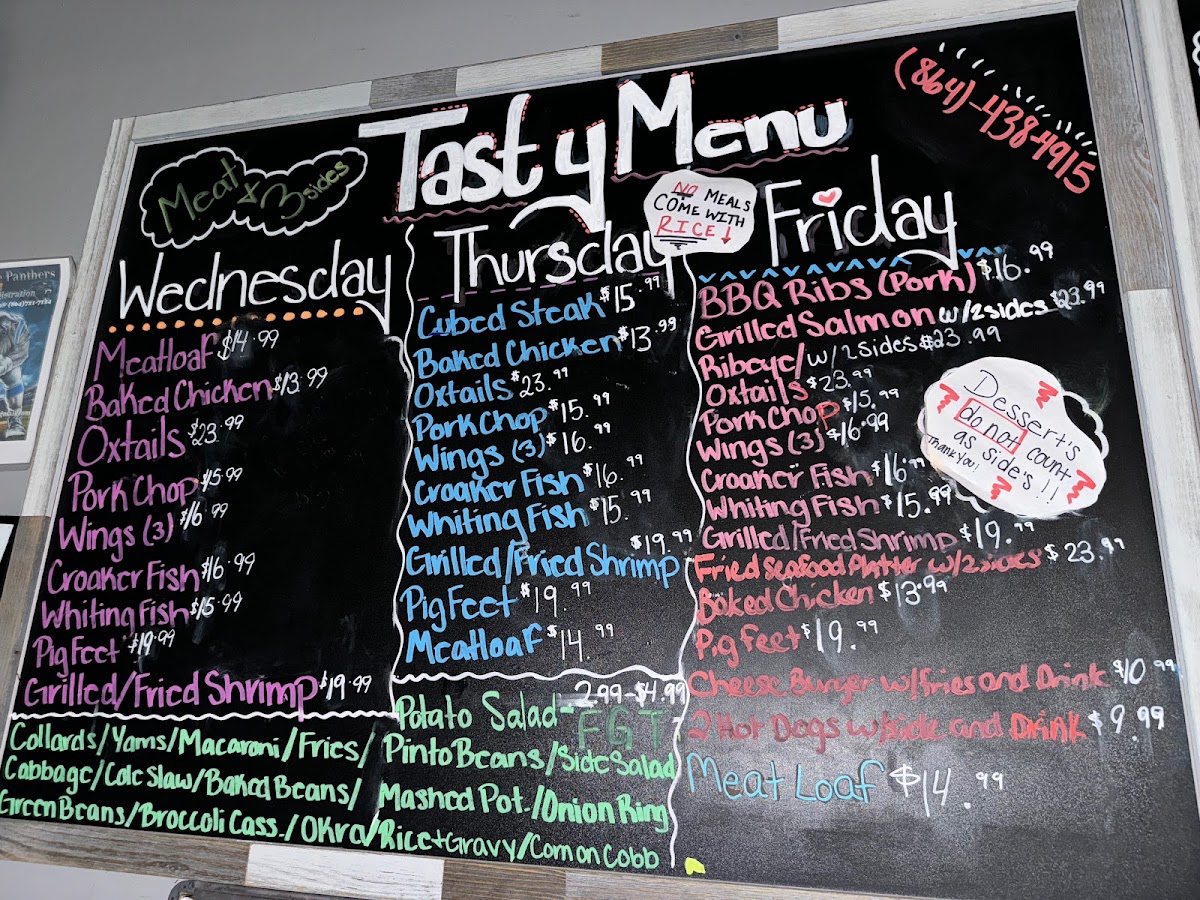 Tasty Menu
(864)-438-4915
Meat & 3 sides
NO MEALS
COME WITH
RICE↓
Wednesday
Meatloaf $14.99
Baked Chicken $13.99
Oxtails $23.99
Pork Chop $15.99
Wings (3) $16.99
Croaker Fish $16.99
Whiting Fish $15.99
Pig Feet $19.99
Grilled/Fried Shrimp $19.99
Thursday
Cubed Steak $15.99
Baked Chicken $13.99
Oxtails $23.99
Pork Chop $15.99
Wings (3) $16.99
Croaker Fish $16.99
Whiting Fish $15.99
Grilled/Fried Shrimp $19.99
Pig Feet $19.99
Meatloaf $14.99
Friday
BBQ Ribs (Pork) $16.99
Grilled Salmon w/2sides $23.99
Ribeye/w/2sides $23.99
Oxtails $23.99
Pork Chop $15.99
Wings (3) $16.99
Croaker Fish $16.99
Whiting Fish $15.99
Grilled/Fried Shrimp $19.99
Fried Seafood Platter w/2sides $23.99
Baked Chicken $13.99
Pig Feet $19.99
Cheese Burger w/fries and Drink $10.99
2 Hot Dogs w/side and DRINK $9.99
Meat Loaf $14.99
Dessert's
do not count
as side's!!
THANK YOU!
Collards/Yams/Macaroni/Fries/
Cabbage/Cole Slaw/Baked Beans/
Green Beans/Broccoli Cass./Okra/
Potato Salad - 2.99-$4.99
FGT
Pinto Beans/Side Salad
Mashed Pot./Onion Ring
Rice+Gravy/Corn on Cobb
Panthers